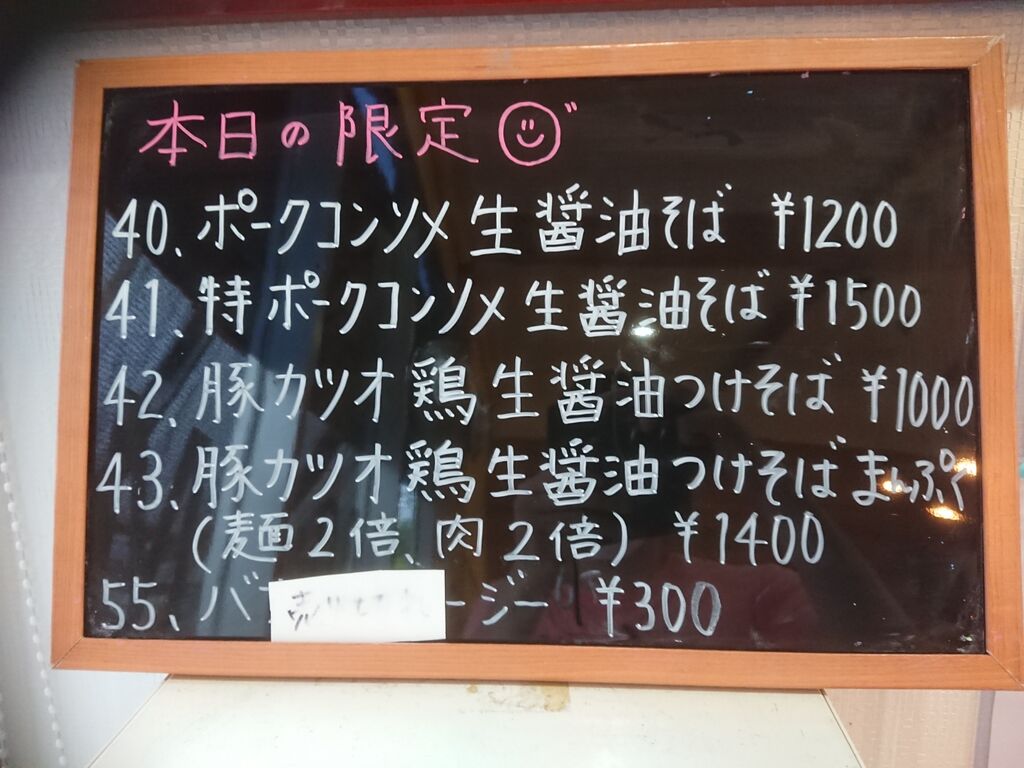 本日の限定
40、ポークコンソメ生醤油そば ¥1200
41、特ポークコンソメ生醤油そば ¥1500
42、豚カツオ鶏生醤油つけそば ¥1000
43、豚カツオ鶏生醤油つけそばまんぷく
(麺2倍、肉2倍) ¥1400
55、バ ージー ¥300